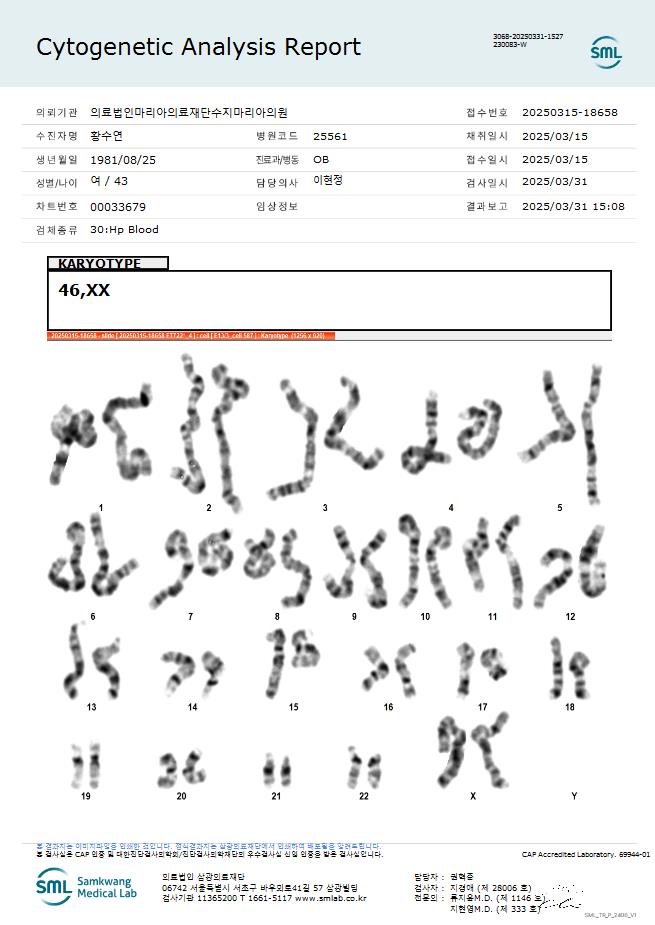 Cytogenetic Analysis Report
3068-20250331-1527
230083-W
SML
의뢰기관 의료법인마리아의료재단수지마리아의원 접수번호 20250315-18658
수진자명 황수연 병원코드 25561 채취일시 2025/03/15
생년월일 1981/08/25 진료과/병동 OB 접수일시 2025/03/15
성별/나이 여 / 43 담당의사 이현정 검사일시 2025/03/31
차트번호 00033679 임상정보 결과보고 2025/03/31 15:08
검체종류 30:Hp Blood
KARYOTYPE
46,XX
1 2 3 4 5
6 7 8 9 10 11 12
13 14 15 16 17 18
19 20 21 22 X Y
본 결과지는 이미지파일을 인쇄한 것입니다. 정식결과지는 삼광의료재단에서 인쇄하여 배포됨을 알려드립니다.
본 검사실은 CAP 인증 및 대한진단검사의학회/진단검사의학재단의 우수검사실 신임 인증을 받은 검사실입니다. CAP Accredited Laboratory. 69944-01
SML Samkwang Medical Lab
의료법인 삼광의료재단
06742 서울특별시 서초구 바우뫼로41길 57 삼광빌딩
검사기관 11365200 T 1661-5117 www.smlab.co.kr
담당자 : 권혁중
검사자 : 지경애 (제 28006 호)
전문의 : 류지윤M.D. (제 1146 호)
지현영M.D. (제 333 호)
SML_TR_P_2400_V1